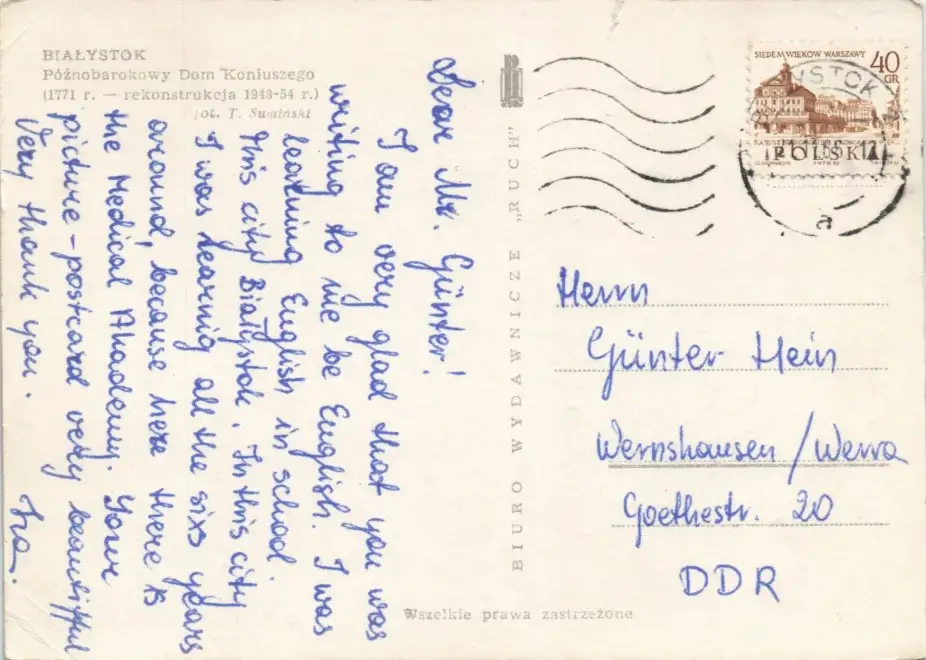 BIAŁYSTOK
Późnobarokowy Dom Koniuszego
(1771 r. — rekonstrukcja 1948-54 r.)
fot. T. Sumiński
Dear Mr. Günter!
I am very glad that you was
writing to me be English. I was
learning English in school.
This city Białystok. In this city
I was learnig all the sixs years
around, because here there is
the Medical Akademy. Your
picture-postcard very beautifful
Very thank you. Ira.
BIURO WYDAWNICZE „RUCH"
SIEDEM WIEKÓW WARSZAWY
40
GR
POLSKA
BIAŁYSTOK
a
Herrn
Günter Hein
Wernshausen/Werra
Goethestr. 20
DDR
Wszelkie prawa zastrzeżone